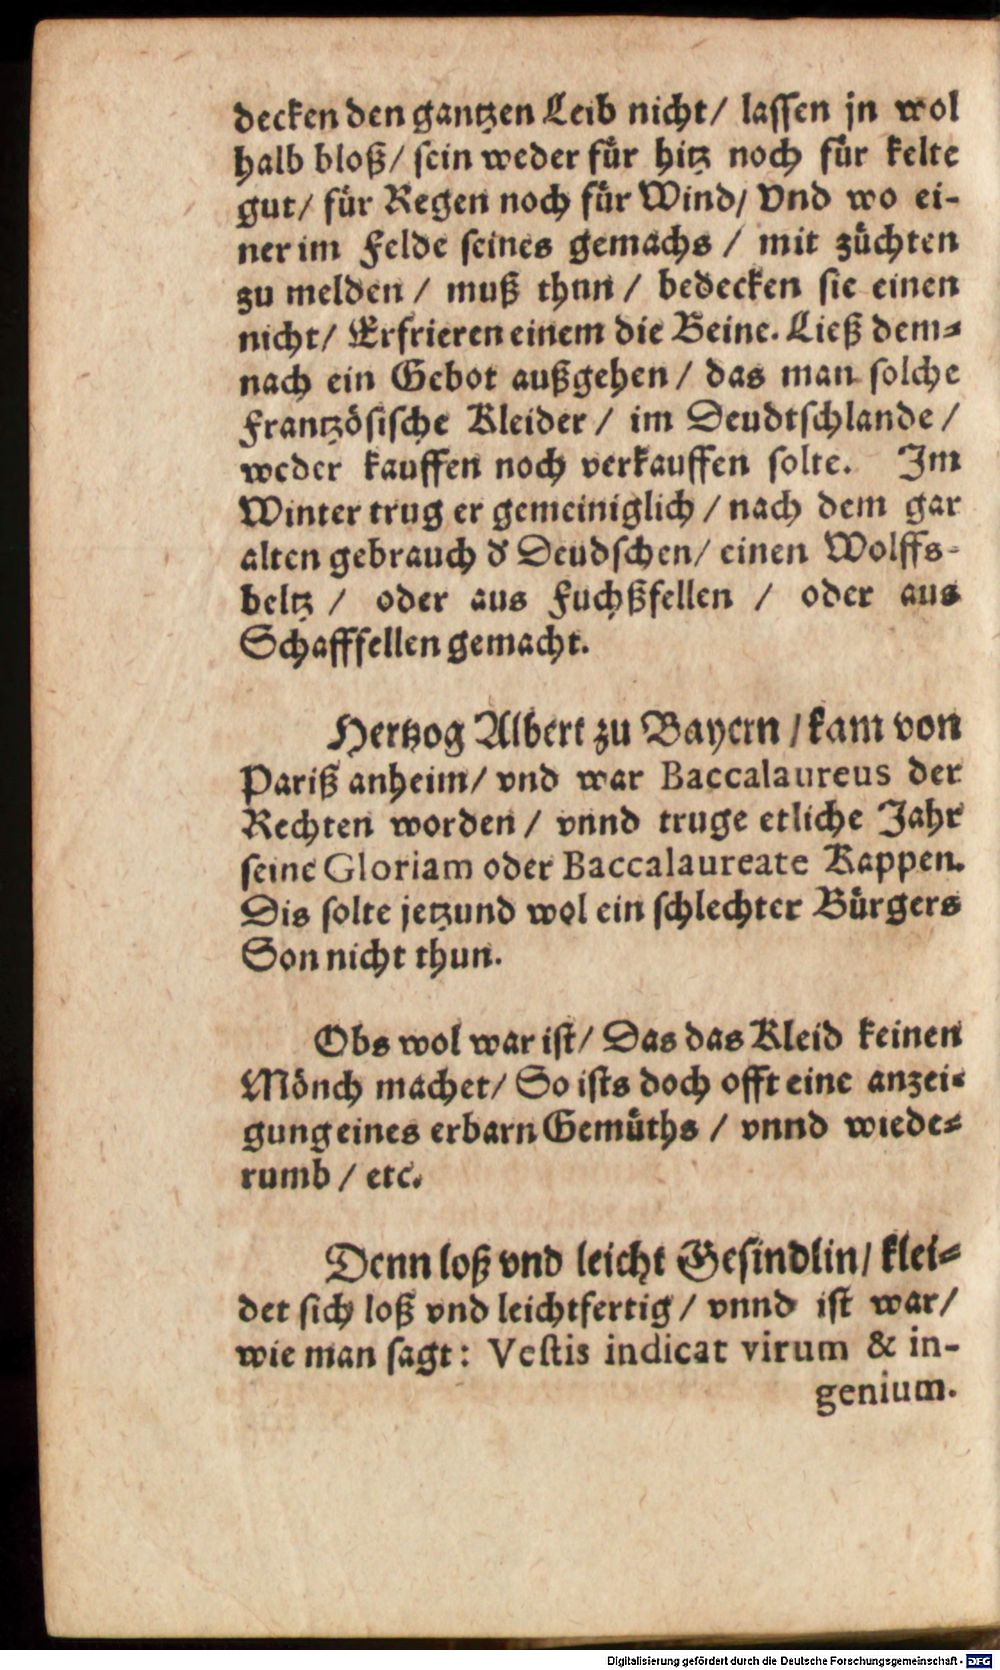 decken den gantzen Leib nicht/ lassen jn wol
halb bloß/ sein weder für hitz noch für kelte
gut/ für Regen noch für Wind/ Vnd wo ei-
ner im Felde seines gemachs / mit züchten
zu melden / muß thun / bedecken sie einen
nicht/ Erfrieren einem die Beine. Ließ dem-
nach ein Gebot außgehen / das man solche
Frantzösische Kleider / im Deudtschlande /
weder kauffen noch verkauffen solte. Im
Winter trug er gemeiniglich / nach dem gar
alten gebrauch d' Deudschen/ einen Wolffs-
beltz / oder aus Fuchßfellen / oder aus
Schafffellen gemacht.
Hertzog Albert zu Bayern / kam von
Pariß anheim/ vnd war Baccalaureus der
Rechten worden / vnnd truge etliche Jahr
seine Gloriam oder Baccalaureate Kappen.
Dis solte jetzund wol ein schlechter Bürgers
Son nicht thun.
Obs wol war ist/ Das das Kleid keinen
Mönch machet/ So ists doch offt eine anzei-
gung eines erbarn Gemüths / vnnd wiede-
rumb / etc.
Denn loß vnd leicht Gesindlin/ klei-
det sich loß vnd leichtfertig / vnnd ist war/
wie man sagt: Vestis indicat virum & in-
genium.
Digitalisierung gefördert durch die Deutsche Forschungsgemeinschaft - DFG